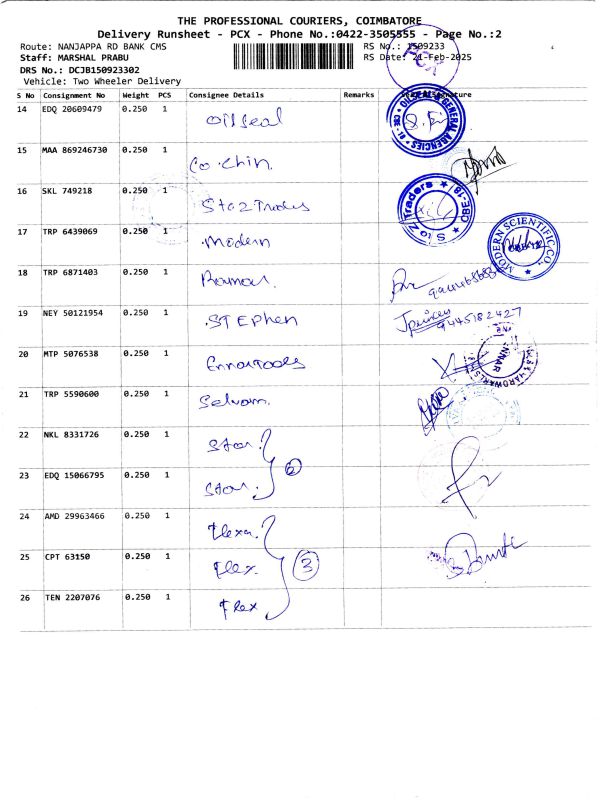 THE PROFESSIONAL COURIERS, COIMBATORE
Delivery Runsheet - PCX - Phone No.:0422-3505555 - Page No.:2
Route: NANJAPPA RD BANK CMS RS No.: 1509233
Staff: MARSHAL PRABU RS Date: 21-Feb-2025
DRS No.: DCJB150923302
Vehicle: Two Wheeler Delivery
PCX
S No Consignment No Weight PCS Consignee Details Remarks Signature
14 EDQ 20609479 0.250 1 Oilseal
15 MAA 869246730 0.250 1 Co.chin.
16 SKL 749218 0.250 1 S to Z Traders
S to Z Traders
17 TRP 6439069 0.250 1 Modern
MODERN SCIENTIFIC CO.
18 TRP 6871403 0.250 1 Raman.
19 NEY 50121954 0.250 1 STEphen 9445182427
20 MTP 5076538 0.250 1 Ennartools
21 TRP 5590600 0.250 1 Selvam.
22 NKL 8331726 0.250 1 Star.
23 EDQ 15066795 0.250 1 Star.
24 AMD 29963466 0.250 1 Flexa.
25 CPT 63150 0.250 1 Flex. 3
26 TEN 2207076 0.250 1 Flex